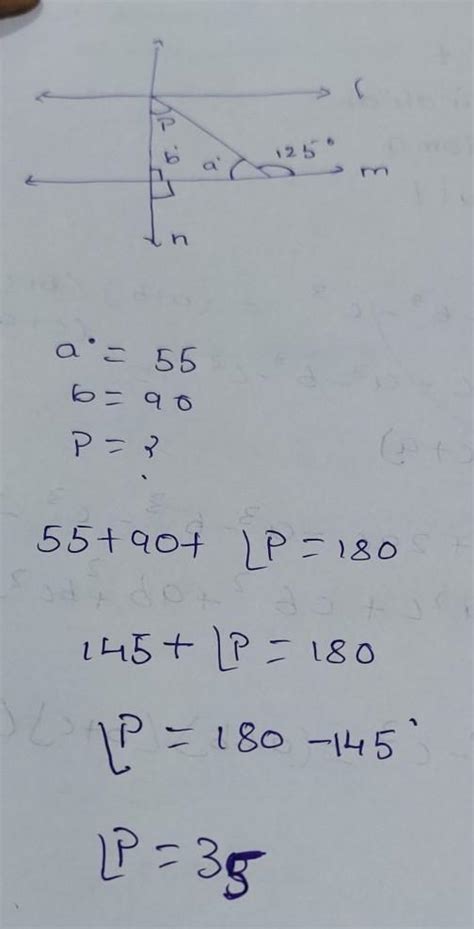 l
P
b
a° 125°
m
n
a° = 55
b = 90
P = ?
55+90+ ∠P = 180
145 + ∠P = 180
∠P = 180 - 145°
∠P = 35